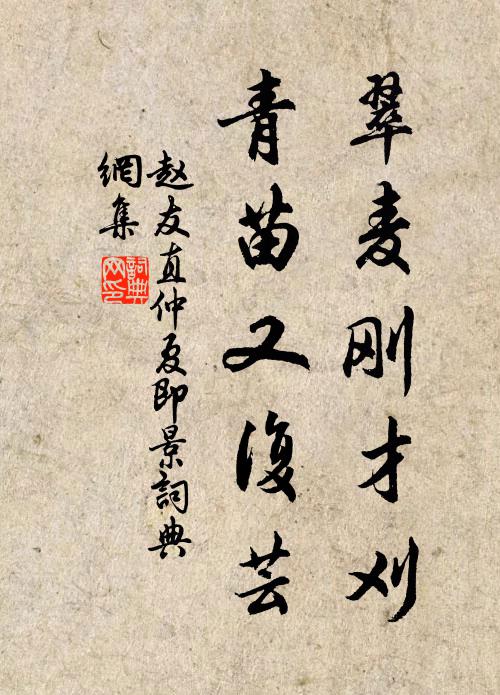 翠麦刚才刈
青苗又復芸
赵友直仲夏即景詞典
網集
詞典
网印